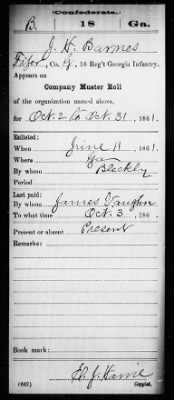 Confederate.
B. 18 Ga.
J. H. Barnes
Fifer, Co. , 18 Reg't Georgia Infantry.
Appears on
Company Muster Roll
of the organization named above,
for Oct. 2 to Dec. 31, 1861.
Enlisted:
When June 11, 1861.
Where Ga
By whom Bleckly
Period
Last paid:
By whom James Vaughn
To what time Oct. 3, 186 .
Present or absent Present
Remarks:
Book mark:
(642) Copyist.